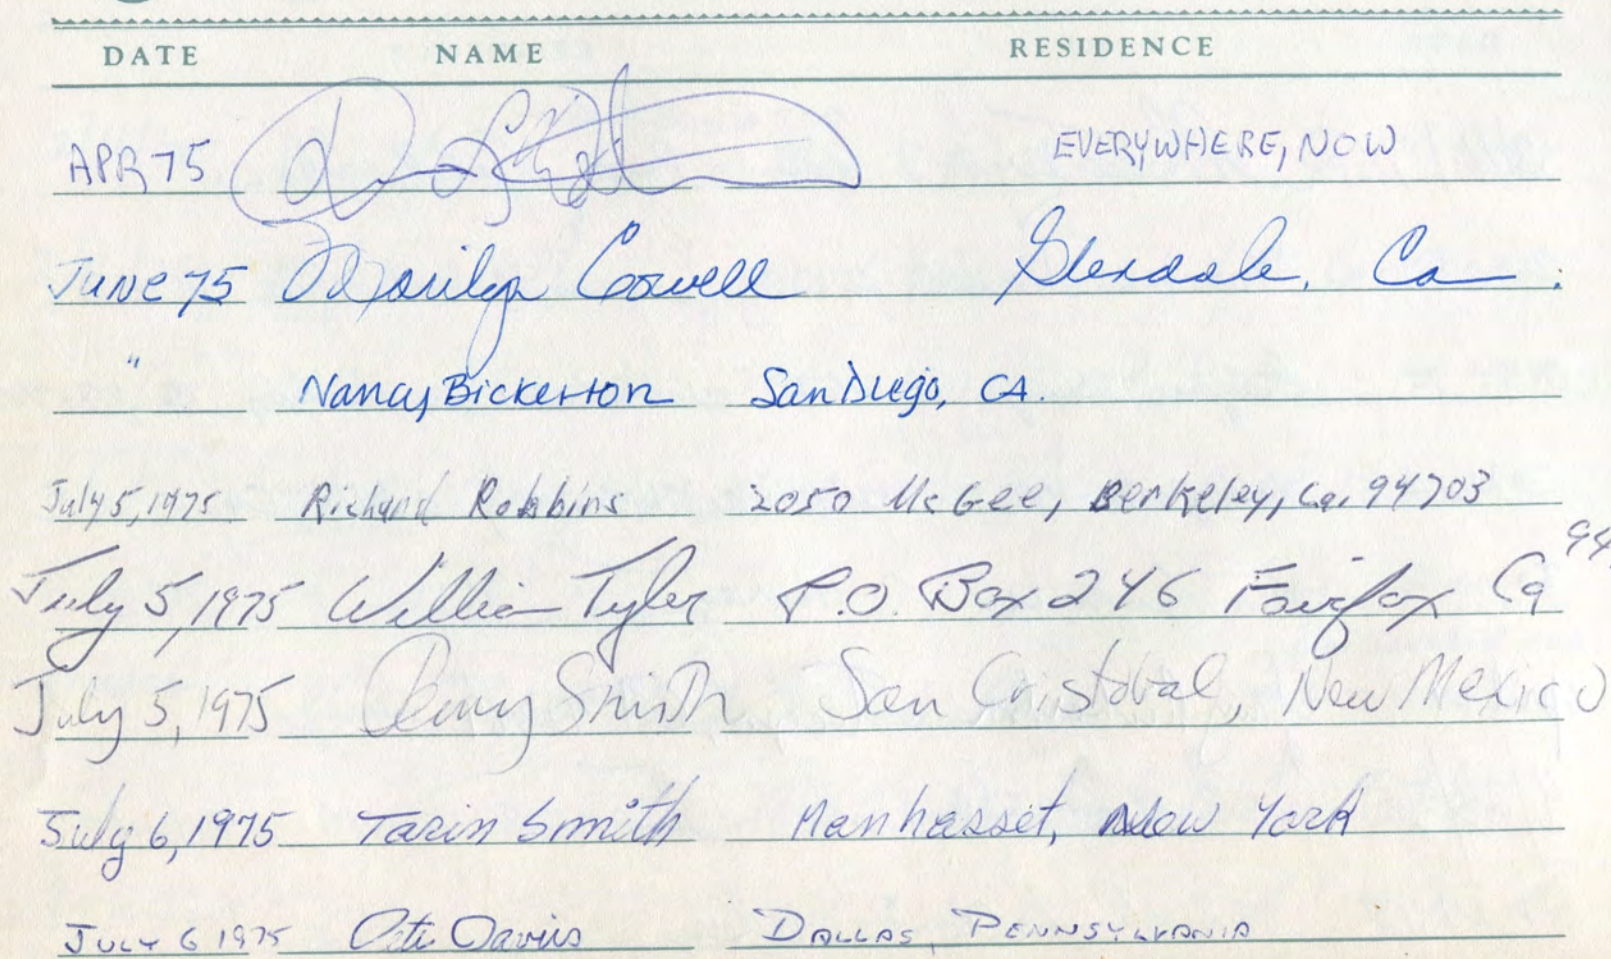 DATE NAME RESIDENCE
APR 75 EVERYWHERE, NOW
June 75 Marilyn Cowell Glendale, Ca.
" Nancy Bickerton San Diego, CA.
July 5, 1975 Richard Robbins 2050 McGee, Berkeley, Ca. 94703
July 5, 1975 William Tyler P.O. Box 246 Fairfax Ca 94
July 5, 1975 Smith San Cristobal, New Mexico
July 6, 1975 Tarin Smith Manhasset, New York
July 6 1975 Pete Davis DALLAS, PENNSYLVANIA